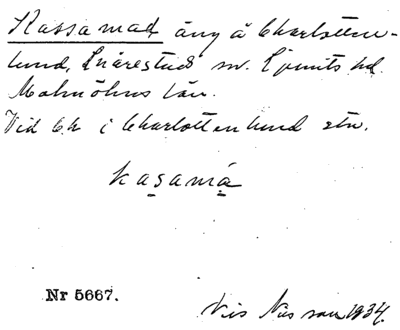 Kassamad äng å Charlotten-
lund, Snårestad sn. Ljunits hd.
Malmöhus län.
Vid Ch i Charlottenlund stn.
kasamá
Nr 5667.
Nils Nilsson 1934.